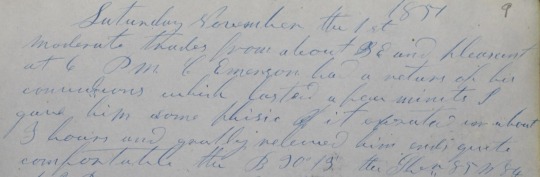 Saturday November the 1st 1851 9
moderate trades from about SE and pleasant
at 6 PM C Emerson had a return of his
convulsions which lasted a few minits I
gave him some phisic & it operated in about
3 hours and greatly relieved him and is quite
comfortable the B 30 13 the Ther